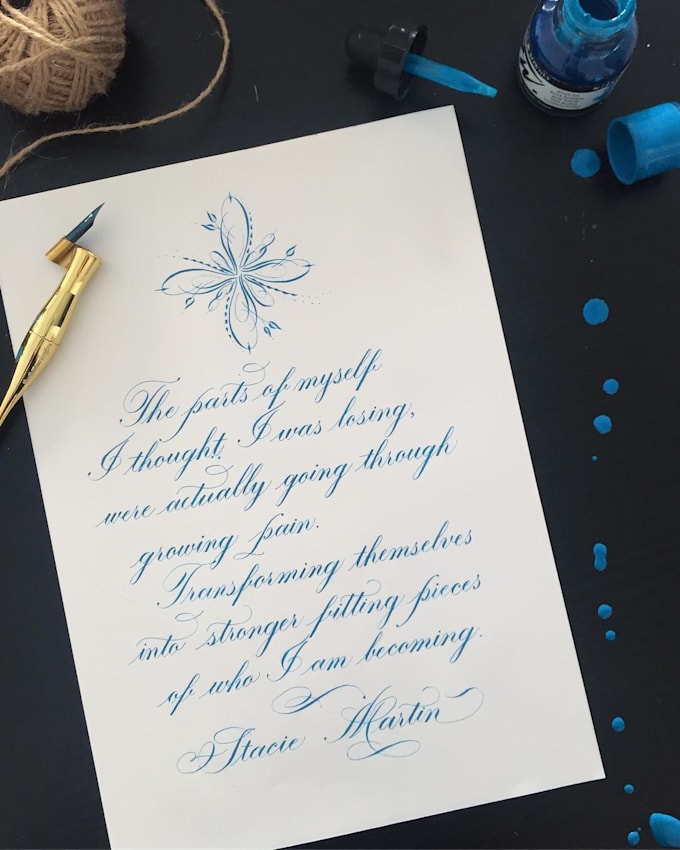 The parts of myself
I thought I was losing,
were actually going through
growing pain.
Transforming themselves
into stronger fitting pieces
of who I am becoming.
Stacie Martin